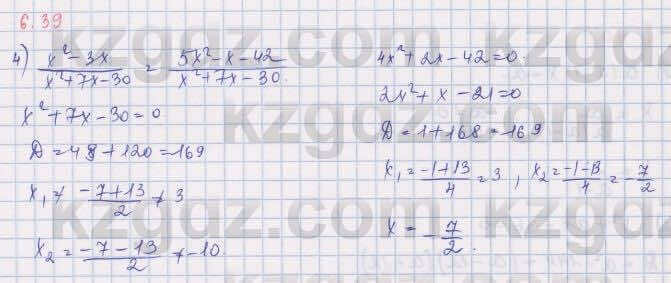 6.39
4) (x²-3x)/(x²+7x-30) = (5x²-x-42)/(x²+7x-30).
x²+7x-30=0
D=49+120=169
x₁ ≠ (-7+13)/2 ≠ 3
x₂ = (-7-13)/2 ≠ -10.
4x²+2x-42=0.
2x²+x-21=0
D=1+168=169
x₁=(-1+13)/4=3, x₂=(-1-13)/4=-7/2
x = -7/2.
kzgdz.com
kzgdz.com
kzgdz.com